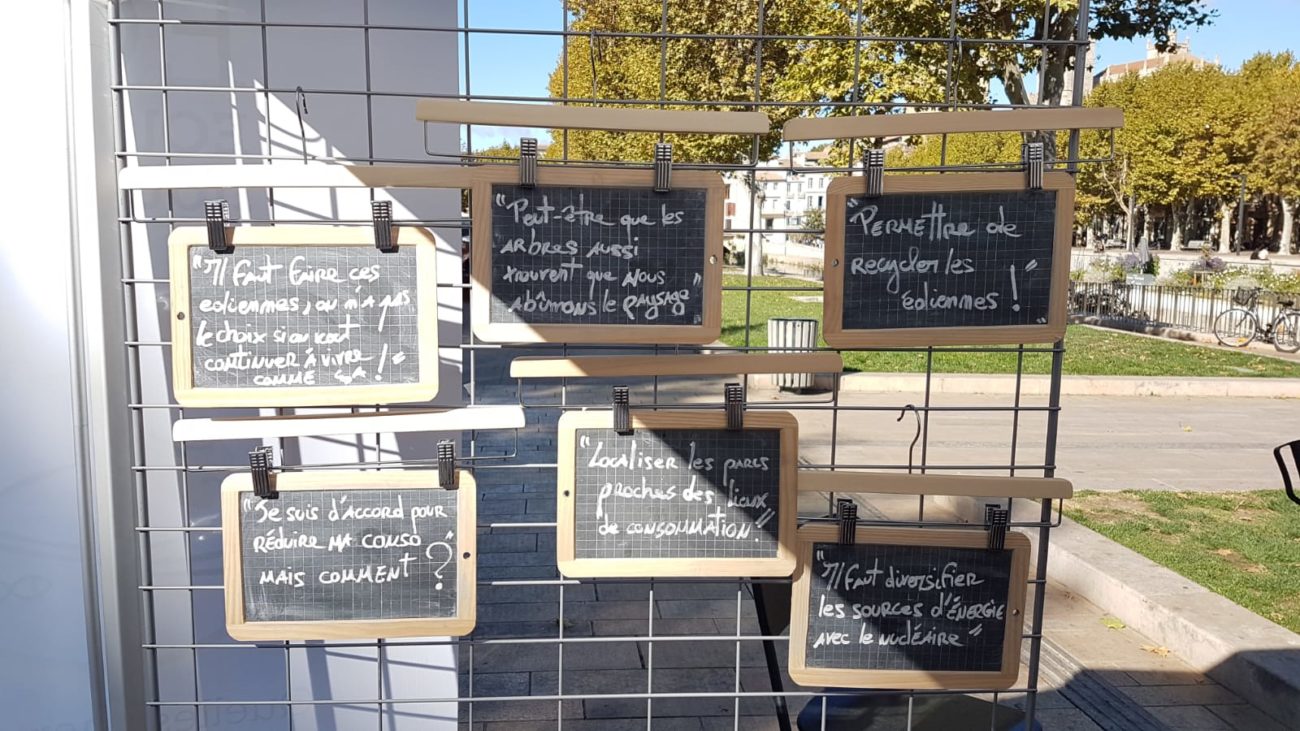 "Il faut faire ces
éoliennes, on n'a pas
le choix si on veut
continuer à vivre
comme ça !"
"Peut-être que les
arbres aussi
trouvent que nous
abîmons le paysage"
"Permettre de
recycler les
éoliennes !"
"Je suis d'accord pour
réduire ma conso
mais comment ?"
"Localiser les parcs
proches des lieux
de consommation."
"Il faut diversifier
les sources d'énergie
avec le nucléaire"